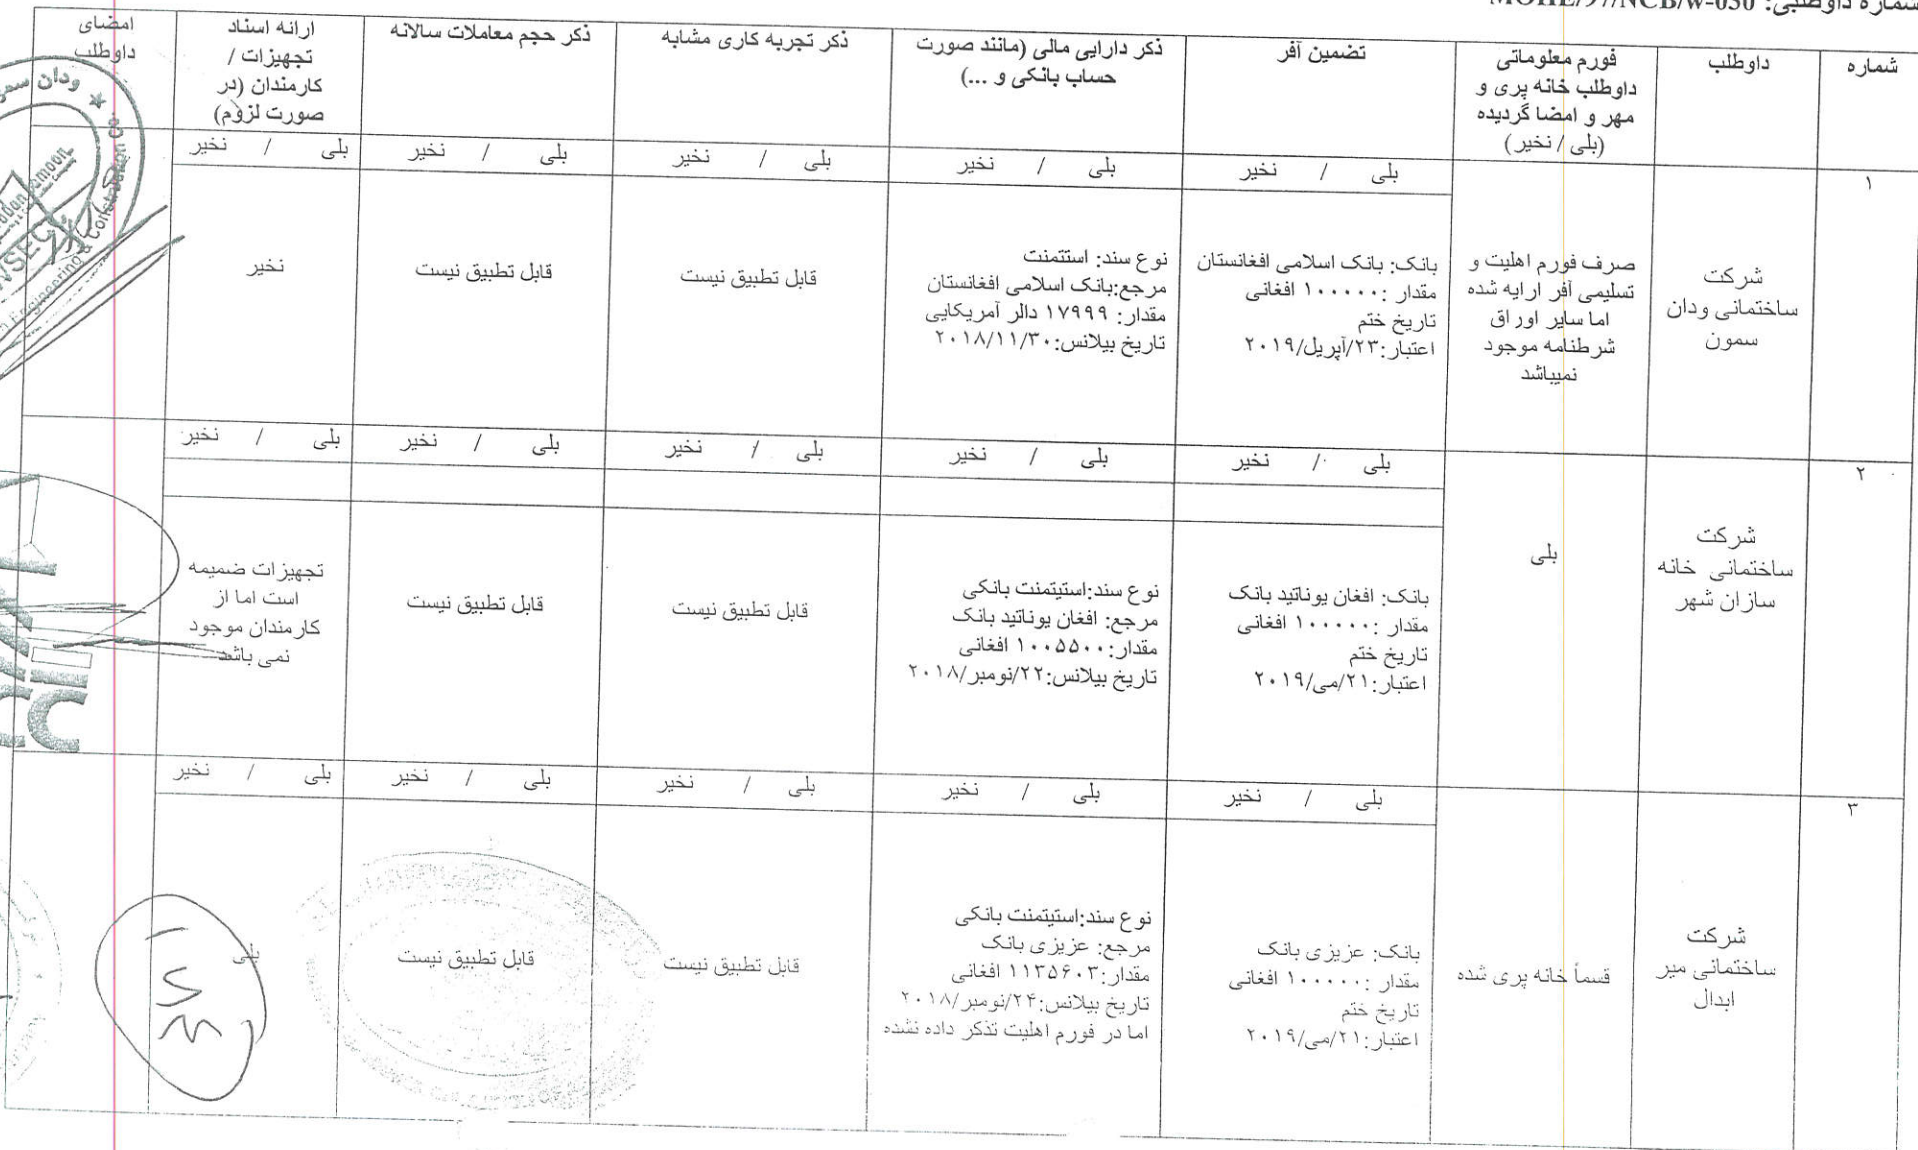 شماره داوطلبی: MOHE/97/NCB/W-030
شماره
داوطلب
فورم معلوماتی
داوطلب خانه پری و
مهر و امضا گردیده
(بلی / نخیر)
تضمین آفر
ذکر دارایی مالی (مانند صورت
حساب بانکی و ...)
ذکر تجربه کاری مشابه
ذکر حجم معاملات سالانه
ارائه اسناد
تجهیزات /
کارمندان (در
صورت لزوم)
امضای
داوطلب
۱
شرکت
ساختمانی ودان
سمون
صرف فورم اهلیت و
تسلیمی آفر ارایه شده
اما سایر اوراق
شرطنامه موجود
نمیباشد
بلی / نخیر
بانک: بانک اسلامی افغانستان
مقدار :۱۰۰۰۰۰ افغانی
تاریخ ختم
اعتبار:۲۳/آپریل/۲۰۱۹
بلی / نخیر
نوع سند: استتمنت
مرجع:بانک اسلامی افغانستان
مقدار: ۱۷۹۹۹ دالر آمریکایی
تاریخ بیلانس:۲۰۱۸/۱۱/۳۰
بلی / نخیر
قابل تطبیق نیست
بلی / نخیر
قابل تطبیق نیست
بلی / نخیر
نخیر
۲
شرکت
ساختمانی خانه
سازان شهر
بلی
بلی / نخیر
بانک: افغان یوناتید بانک
مقدار :۱۰۰۰۰۰ افغانی
تاریخ ختم
اعتبار:۲۱/می/۲۰۱۹
بلی / نخیر
نوع سند:استیتمنت بانکی
مرجع: افغان یوناتید بانک
مقدار:۱۰۰۵۵۰۰ افغانی
تاریخ بیلانس:۲۲/نومبر/۲۰۱۸
بلی / نخیر
قابل تطبیق نیست
بلی / نخیر
قابل تطبیق نیست
بلی / نخیر
تجهیزات ضمیمه
است اما از
کارمندان موجود
نمی باشد
۳
شرکت
ساختمانی میر
ابدال
قسماً خانه پری شده
بلی / نخیر
بانک: عزیزی بانک
مقدار :۱۰۰۰۰۰ افغانی
تاریخ ختم
اعتبار:۲۱/می/۲۰۱۹
بلی / نخیر
نوع سند:استیتمنت بانکی
مرجع: عزیزی بانک
مقدار:۱۱۳۵۶۰۳ افغانی
تاریخ بیلانس:۲۴/نومبر/۲۰۱۸
اما در فورم اهلیت تذکر داده نشده
بلی / نخیر
قابل تطبیق نیست
بلی / نخیر
قابل تطبیق نیست
بلی / نخیر
بلی